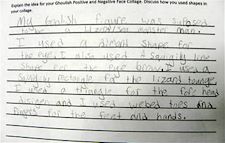 Explain the idea for your Ghoulish Positive and Negative Face Collage. Discuss how you used shapes in
your collage.
My Goulish figure was suposed
to be a lizard man.
I used a almont shape for
the eyes I also used a squigily line
shape for the eye brow. I used a
rectangle for the lizard tounge.
I used a triangle for the head
and I used webed toes and
fingers for the feet and hands.